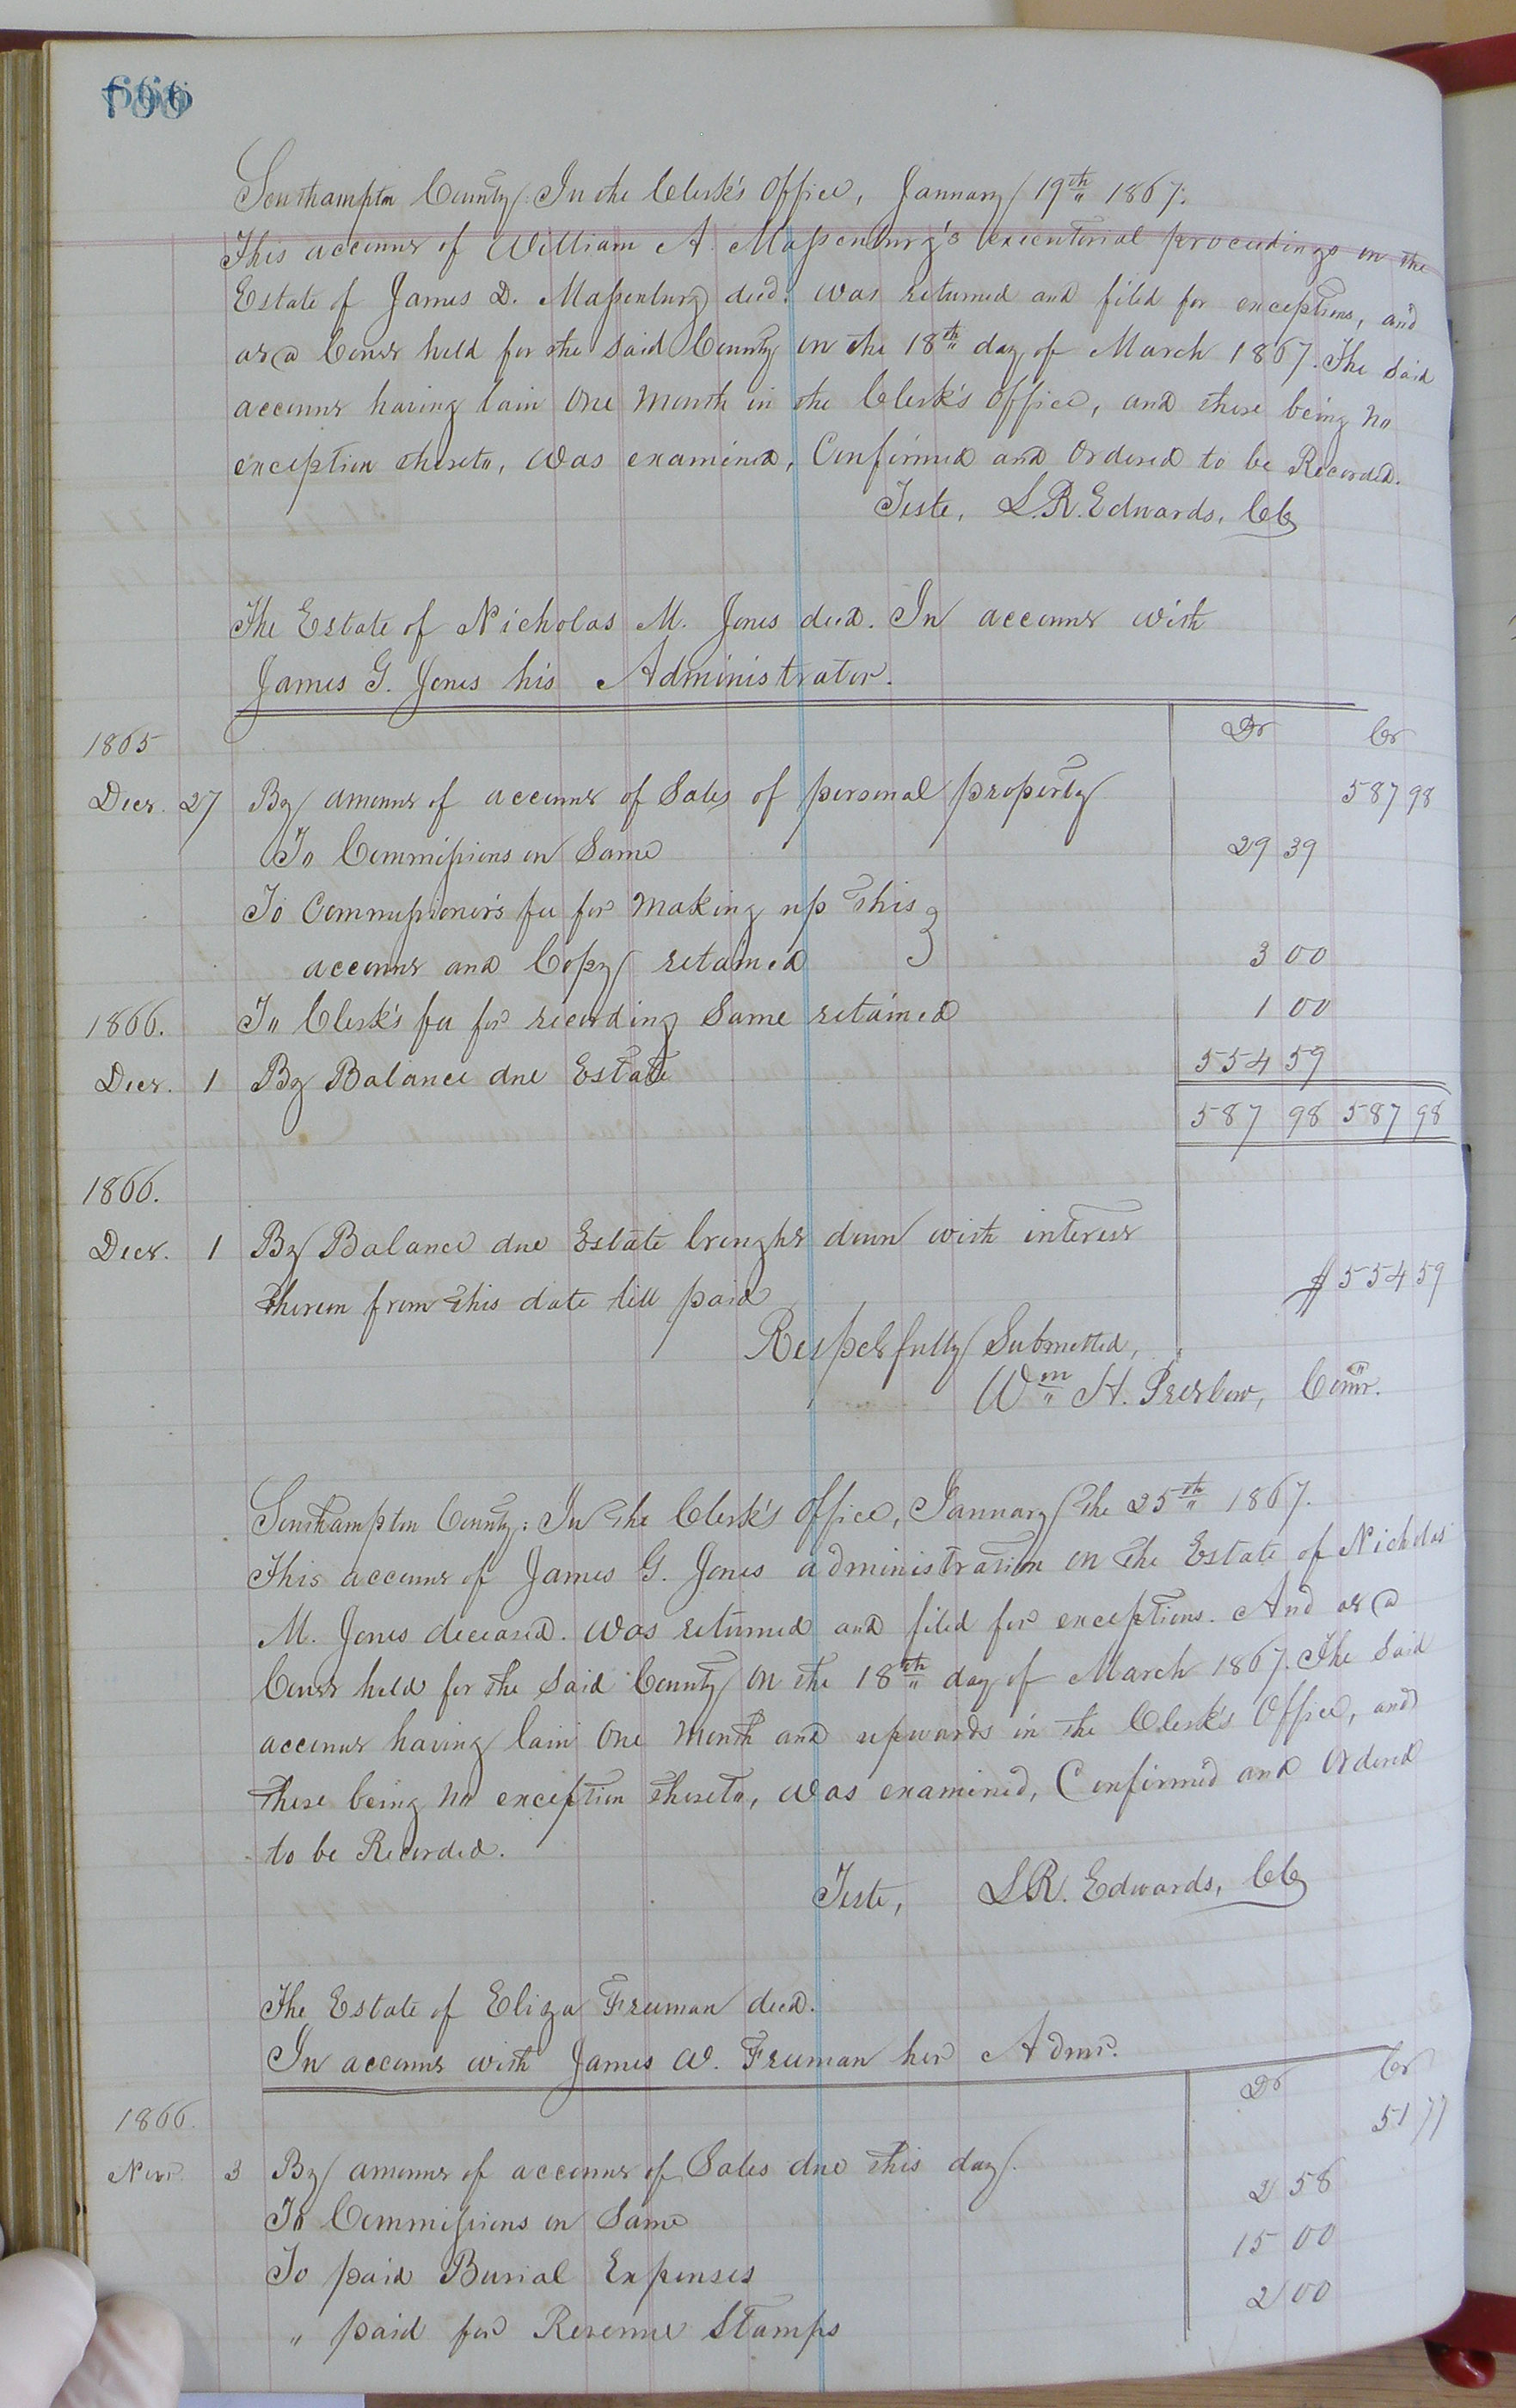 666
Southampton County: In the Clerk's Office, January 19th 1867.
This account of William A. Massenburg's executorial proceedings on the
Estate of James D. Massenburg decd. was returned and filed for exceptions, and
at a Court held for the said County on the 18th day of March 1867. The said
account having lain One Month in the Clerk's Office, and there being no
exception thereto, was examined, Confirmed and Ordered to be Recorded.
Teste, L.R. Edwards, CC
The Estate of Nicholas M. Jones decd. In account with
James G. Jones his Administrator.
1865 Dr Cr
Decr. 27 By amount of account of Sales of personal property 587 98
To Commissions on Same 29 39
To Commissioner's fee for making up this
account and Copy retained 3 00
1866. To Clerk's fee for recording Same retained 1 00
Decr. 1 By Balance due Estate 554 59
587 98 587 98
1866.
Decr. 1 By Balance due Estate brought down with interest
thereon from this date till paid $554 59
Respectfully Submitted,
Wm H. Pretlow, Comr.
Southampton County: In the Clerk's Office, January the 25th 1867.
This account of James G. Jones administration on the Estate of Nicholas
M. Jones deceased. was returned and filed for exceptions. And at a
Court held for the said County on the 18th day of March 1867. The said
account having lain One Month and upwards in the Clerk's Office, and
there being no exception thereto, was examined, Confirmed and Ordered
to be Recorded.
Teste, L.R. Edwards, CC
The Estate of Eliza Freeman decd.
In account with James W. Freeman her Admr.
1866. Dr Cr
Novr. 3 By amount of account of Sales due this day. 51 77
To Commissions on Same 2 58
To paid Burial Expenses 15 00
" paid for Revenue Stamps 2 00